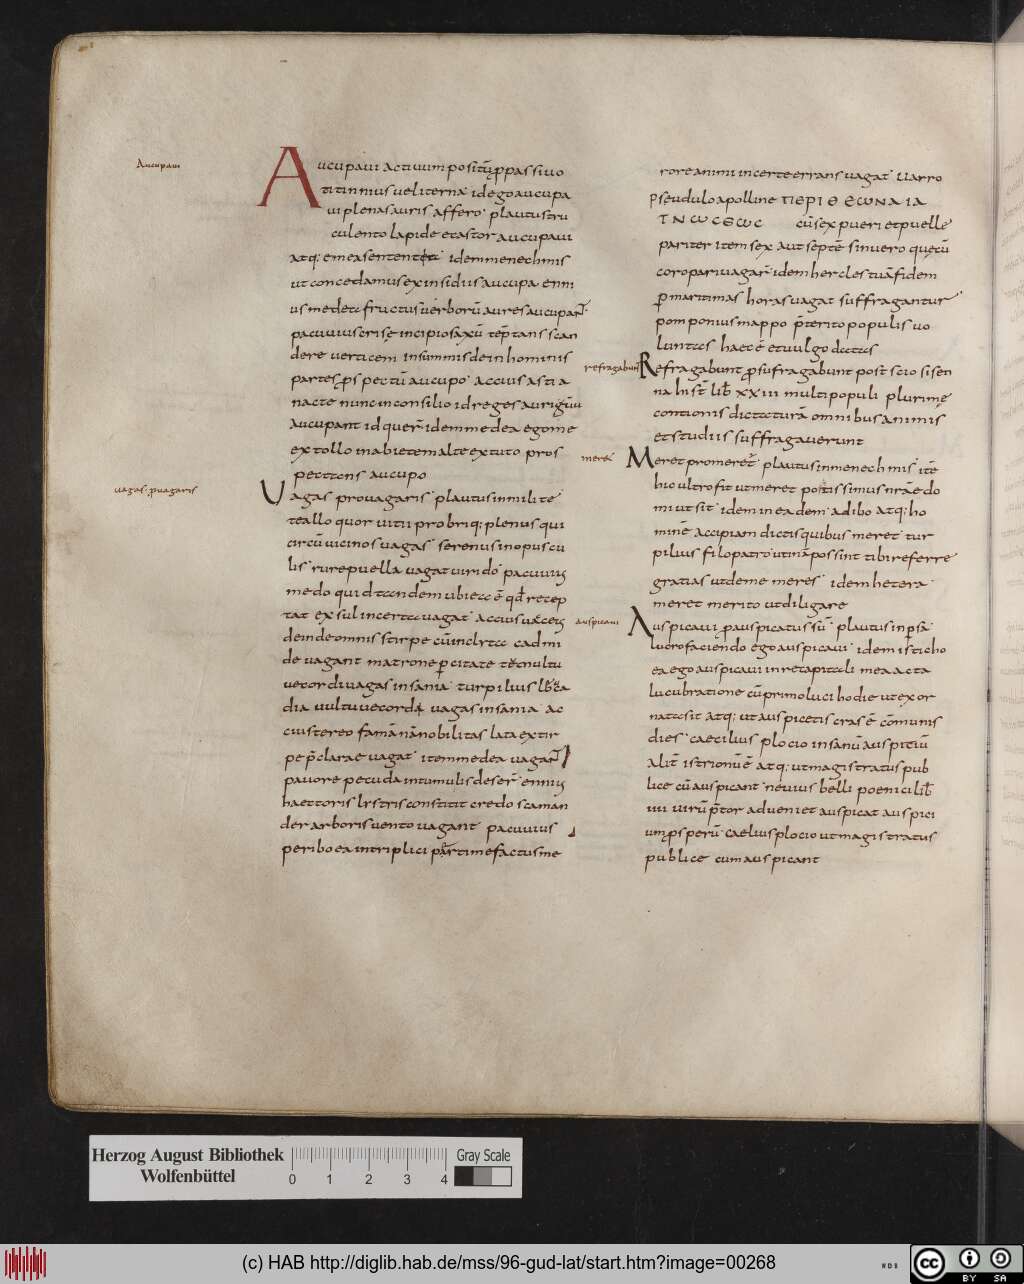 Aucupaui
Aucupaui actiuum positū ꝓ passiuo
titinnius ueliterna idego aucupa
ui plenas auris affero plautus tru
culento lapide et astor aucupaui
atq; e mea sentent idem menechmis
ut concedamus ex insidiis aucupa enni
us medea fructus uerborū aures aucupant
pacuuius crise incipio saxū temptans scan
dere uerticem in summis dein hominis
partes ꝓspectū aucupo accius astia
nacte nunc in consilio id reges
aucupant id quer idem medea ego me
extollo in abietem alte ex tuto pros
pectans aucupo
uagas ꝓuagaris
Uagas pro uagaris plautus in milite
te allo quor uitii probriq; plenus qui
circū uicinos uagas serenus in opuscu
lis rure puella uagat uirido pacuuius
medo quid tandem ubi ea ē qd recep
tat exsul incerta uagat accius
deinde omnis stirpe cū inclyta cadmi
de uagant matrone percitate tumultu
uecordi uagas insania turpilius
dia uultu uecordi uagas insania ac
cius tereo famā nā nobilitas lata ex tir
pe p̄clarae uagat item medea uagant
pauore pecuda in tumulis deser ennius
haetoris lystris constitit credo scaman
der arboris uento uagant pacuuius
periboea intriplici partim efactus me
rore animi incerte errans uagat uarro
pseudulo apolline ΠΕΡΙ ΘΕΩΝ ΔΙΑ
cū sex pueri et puelle
pariter item sex aut septē si nuero quecū
coro pari uagar idem hercles tuā fidem
per maritimas horas uagat suffragantur
pomponius mappo p̄terito populis uo
luntas haec ē et uulgo datas
refragabunt
Refragabunt ꝓ sufragabunt post scio sisen
na hist lib xxiii multi populi plurime
contionis dictaturā omnibus animis
et studiis suffragauerunt
meret
Meret promeret plautus in menechmis ite
hic ultro fit ut meret potissimus nrāe do
mi ut sit idem in eadem adibo atq; ho
minē accipiam dictis quibus meret tur
pilius filopatro utinā possint tibi referre
gratias ut de me meres idem hetera
meret merito ut diligare
auspicaui
Auspicaui ꝓ auspicatus sū plautus in persa
lucro faciendo ego auspicaui idem isticho
ea ego auspicaui in re tapitali mea acta
lucubratione cū primo luci hodie ut exor
nata sit atq; ut auspicetis cras ē cōmunis
dies caecilius plocio insanū auspitiū
alit istrionūē atq; ut magistratus pub
lice cū auspicant neuius belli poenici lib
iiii uirū p̄tor adueniet auspicat auspici
um ꝓsperū caelius plocio ut magistratus
publice cum auspicant
Herzog August Bibliothek
Wolfenbüttel
0 1 2 3 4
Gray Scale
(c) HAB http://diglib.hab.de/mss/96-gud-lat/start.htm?image=00268
WDB
cc BY SA